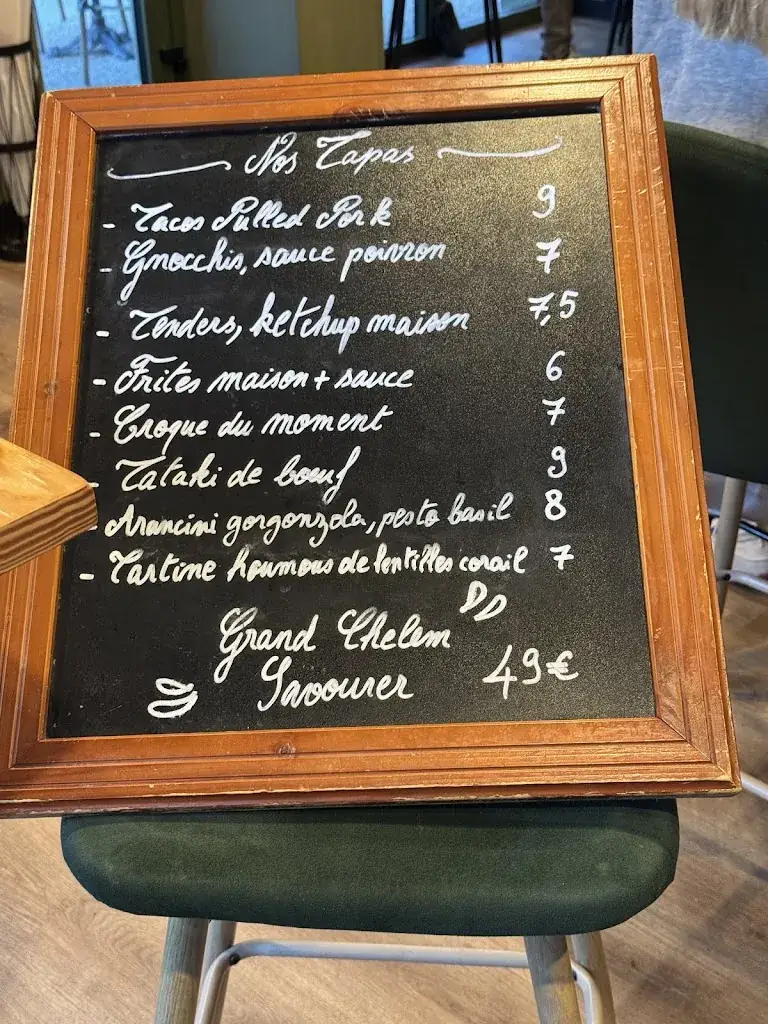 Nos Tapas
- Tacos Pulled Pork 9
- Gnocchis, sauce poivron 7
- Tenders, ketchup maison 7,5
- Frites maison + sauce 6
- Croque du moment 7
- Tataki de boeuf 9
- Arancini gorgonzola, pesto basil 8
- Tartine houmous de lentilles corail 7
Grand Chelem
Savourer 49€